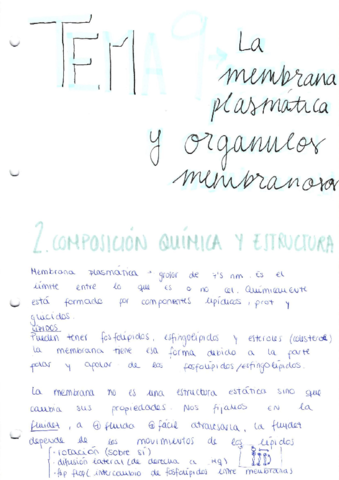 TEMA 9 → La
membrana
plasmática
y organulos
membranosos
2. COMPOSICIÓN QUÍMICA Y ESTRUCTURA
Membrana plasmática → grosor de 7'5 nm. Es el
límite entre lo que es o no cel. Químicamente
está formada por componentes lipídicos, prot y
glúcidos.
Pueden tener fosfolípidos, esfingolípidos y esteroles (colesterol)
la membrana tiene esa forma debido a la parte
polar y apolar de los fosfolípidos/esfingolípidos
La membrana no es una estructura estática sino que
cambia sus propiedades. Nos fijamos en la
fluidez, a ⊕ fluido ⊕ fácil atravesarla, la fluidez
depende de los movimientos de los lípidos
- rotación (sobre sí)
- difusión lateral (de derecha a izq)
- flip flop (intercambio de fosfolípidos entre membrana)